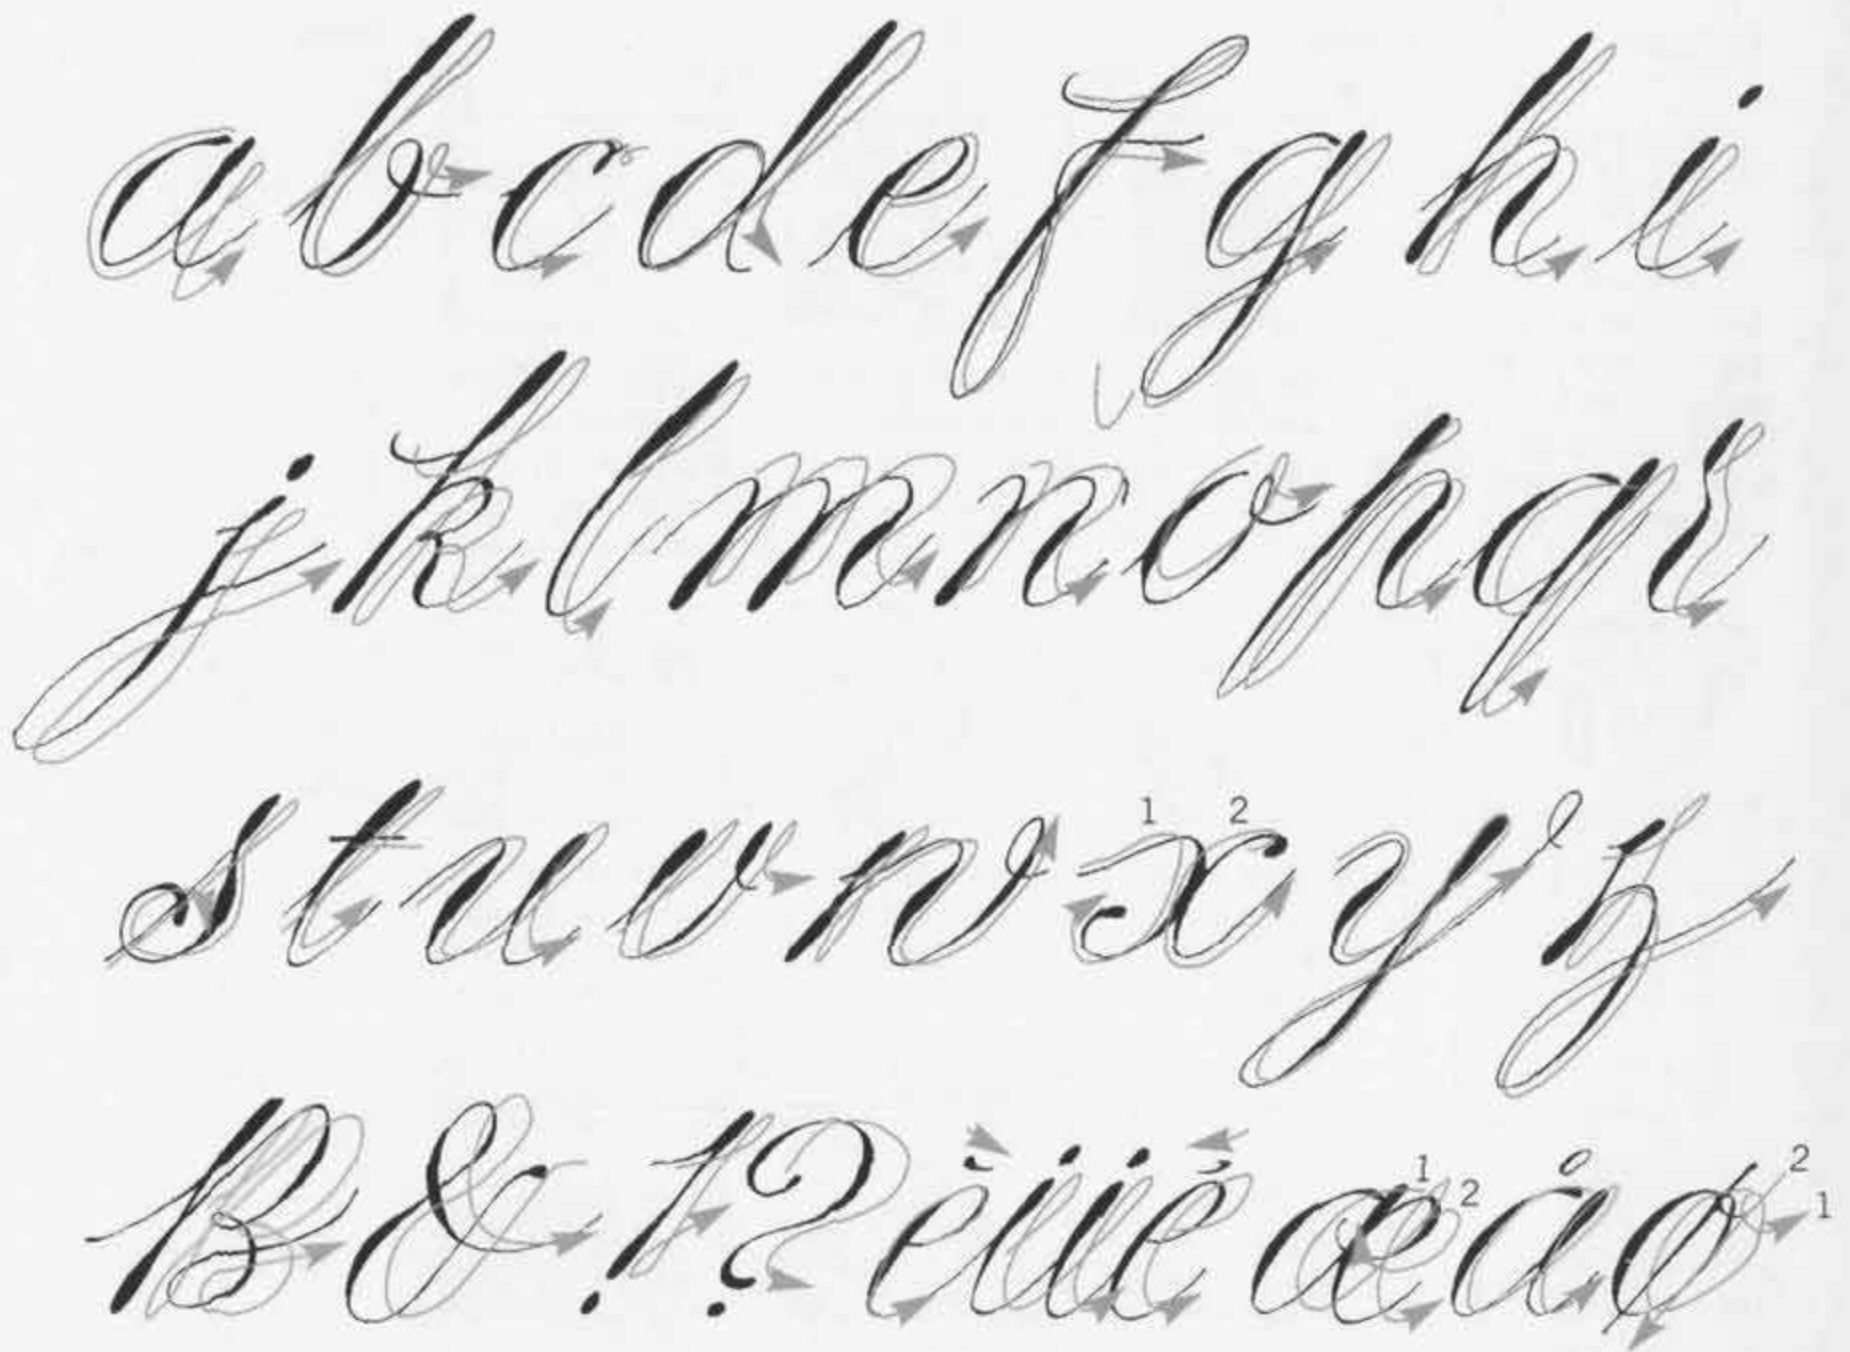 a b c d e f g h i
j k l m n o p q r
1 2
s t u v w x y z
ß & ! ? è ü é æ 1 2 å ø 2 1